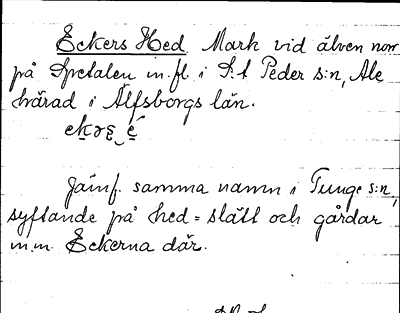 Eckers Hed. Mark vid älven norr
på Spetalen m.fl. i S:t Peder s:n, Ale
härad i Älfsborgs län.
Jämf. samma namn i Tunge s:n,
syftande på hed = slätt och gårdar
m.m. Eckerna där.